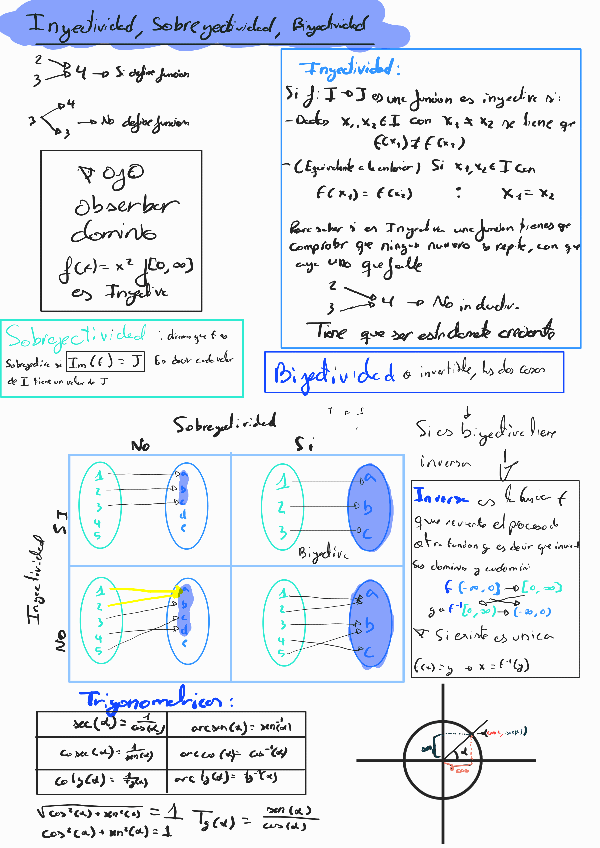 Inyectividad, Sobreyectividad, Biyectividad
2
3 4 → Si define funcion
3 4
3 → No define funcion
OJO
Observar
dominio
f(x) = x² f[0, ∞]
es Inyectiva
Inyectividad:
Si f: I → J es una funcion es inyectiva si:
- Dados x₁, x₂ ∈ I con x₁ ≠ x₂ se tiene que
f(x₁) ≠ f(x₂)
- (Equivalente a la anterior) Si x₁, x₂ ∈ I con
f(x₁) = f(x₂) : x₁ = x₂
Para saber si es Inyectiva una funcion tienes que
comprobar que ningun numero se repite, con que
haya uno que falle
2
3 4 → No inductiv.
Tiene que ser estrictamente creciente
Sobreyectividad : diremos que f es
Sobreyectiva si Im(f) = J Es decir cada valor
de I tiene un valor de J
Biyectividad o invertible, los dos casos
Si es biyectiva tiene
inversa
Sobreyectividad
No Si
Inyectividad
SI
1 2 3 4 5
a b c d e
1 2 3
a b c
Biyectiva
NO
1 2 3 4 5
b c d e
1 2 3 4 5
a b c
Inversa es la funcion f
que revierte el proceso de
otra funcion y es decir que invierte
sus dominio y codominio
f (-∞, 0] → [0, ∞)
g = f⁻¹ [0, ∞) → (-∞, 0)
Si existe es unica
f(x) = y → x = f⁻¹(y)
Trigonometricos:
sec(α) = 1/cos(α) arcsen(α) = sen⁻¹(α)
cosec(α) = 1/sen(α) arccos(α) = cos⁻¹(α)
cotg(α) = 1/tg(α) arctg(α) = tg⁻¹(α)
√cos²(α) + sen²(α) = 1 Tg(α) = sen(α)/cos(α)
cos²(α) + sen²(α) = 1
sen α
cos